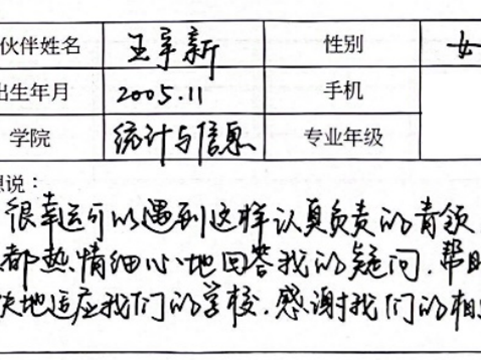 伙伴姓名 王宇新 性别 女
出生年月 2005.11 手机
学院 统计与信息 专业年级
想说：
很幸运可以遇到这样认真负责的青领
都热情细心地回答我的疑问，帮助
快地适应我们的学校，感谢我们的相